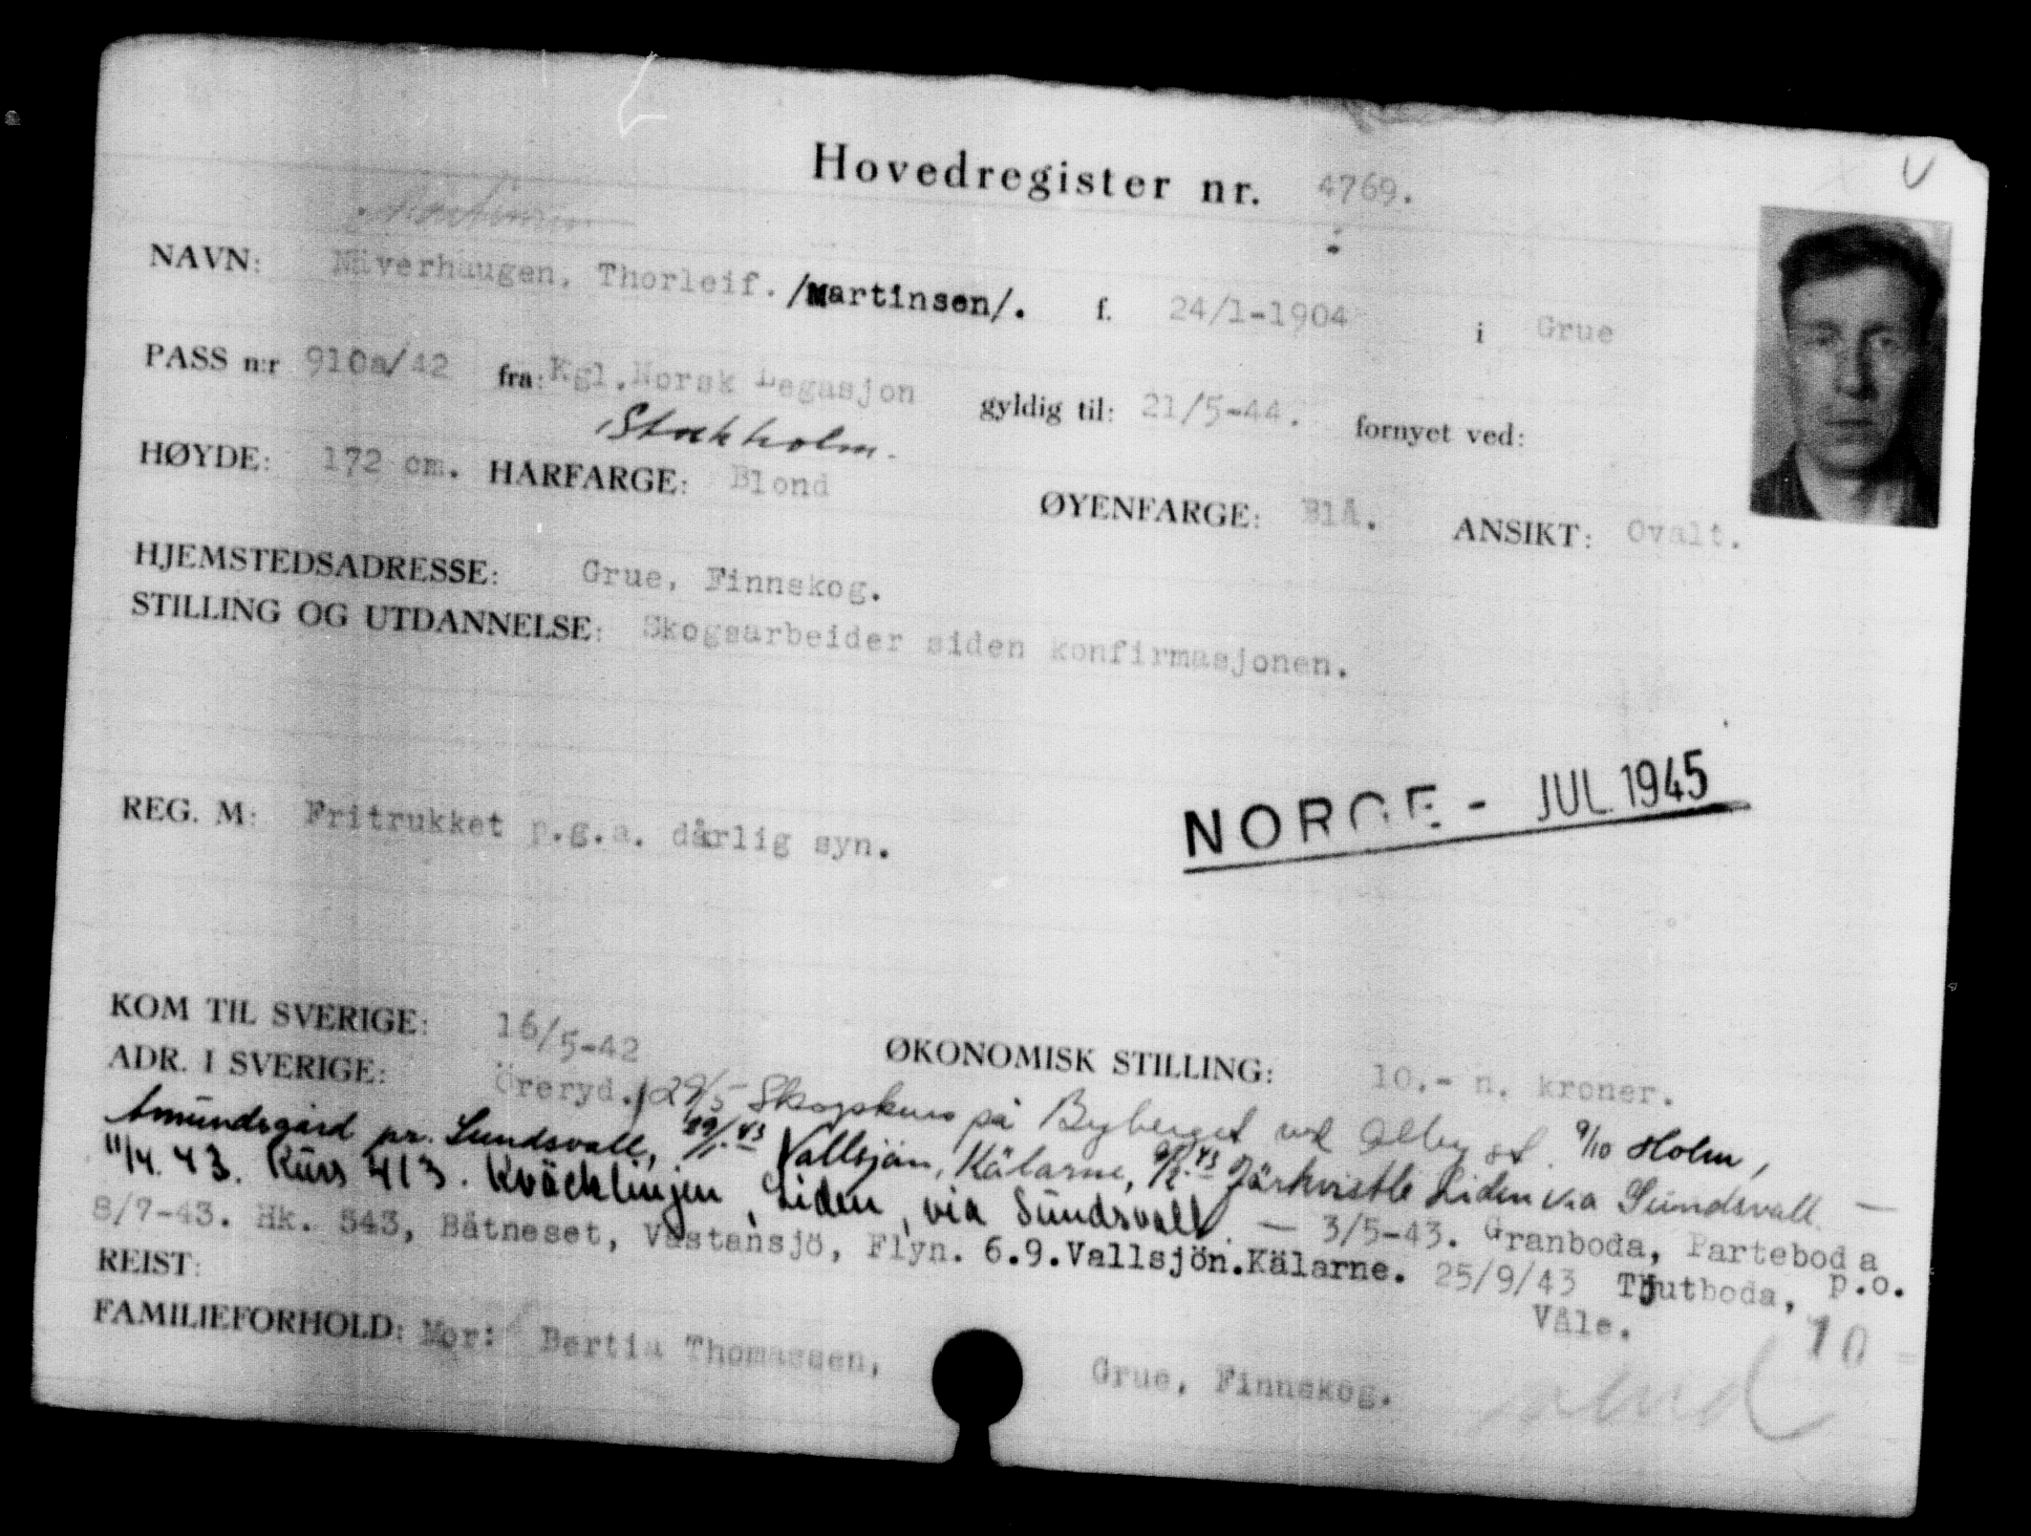 Hovedregister nr. 4769.
Martinsen
NAVN: Niverhaugen, Thorleif. /Martinsen/. f. 24/1-1904 i Grue
PASS n:r 910a/42 fra: Kgl. Norsk Legasjon gyldig til: 21/5-44. fornyet ved:
Stockholm.
HØYDE: 172 cm. HÅRFARGE: Blond ØYENFARGE: Blå. ANSIKT: Ovalt.
HJEMSTEDSADRESSE: Grue, Finnskog.
STILLING OG UTDANNELSE: Skogsarbeider siden konfirmasjonen.
NORGE - JUL 1945
REG. M: Fritrukket p.g.a. dårlig syn.
KOM TIL SVERIGE: 16/5-42 ØKONOMISK STILLING: 10.- n. kroner.
ADR. I SVERIGE: Öreryd. /29/5 Skogskurs på Byberget ved Alby st. 9/10 Holm,
Amundsgård pr. Sundsvall, 43 Vallsjön, Kälarne, 43 Järkvistle Liden via Sundsvall. —
11/4.43. Kurs 413. Kväcklingen, Liden, via Sundsvall. — 3/5-43. Granboda, Parteboda p.o.
8/7-43. Hk. 543, Båtneset, Västansjö, Flyn. 6.9. Vallsjön. Kälarne. 25/9/43 Tjutboda,
Våle. 10
REIST:
FAMILIEFORHOLD: Mor: Bertia Thomassen, Grue, Finnskog.